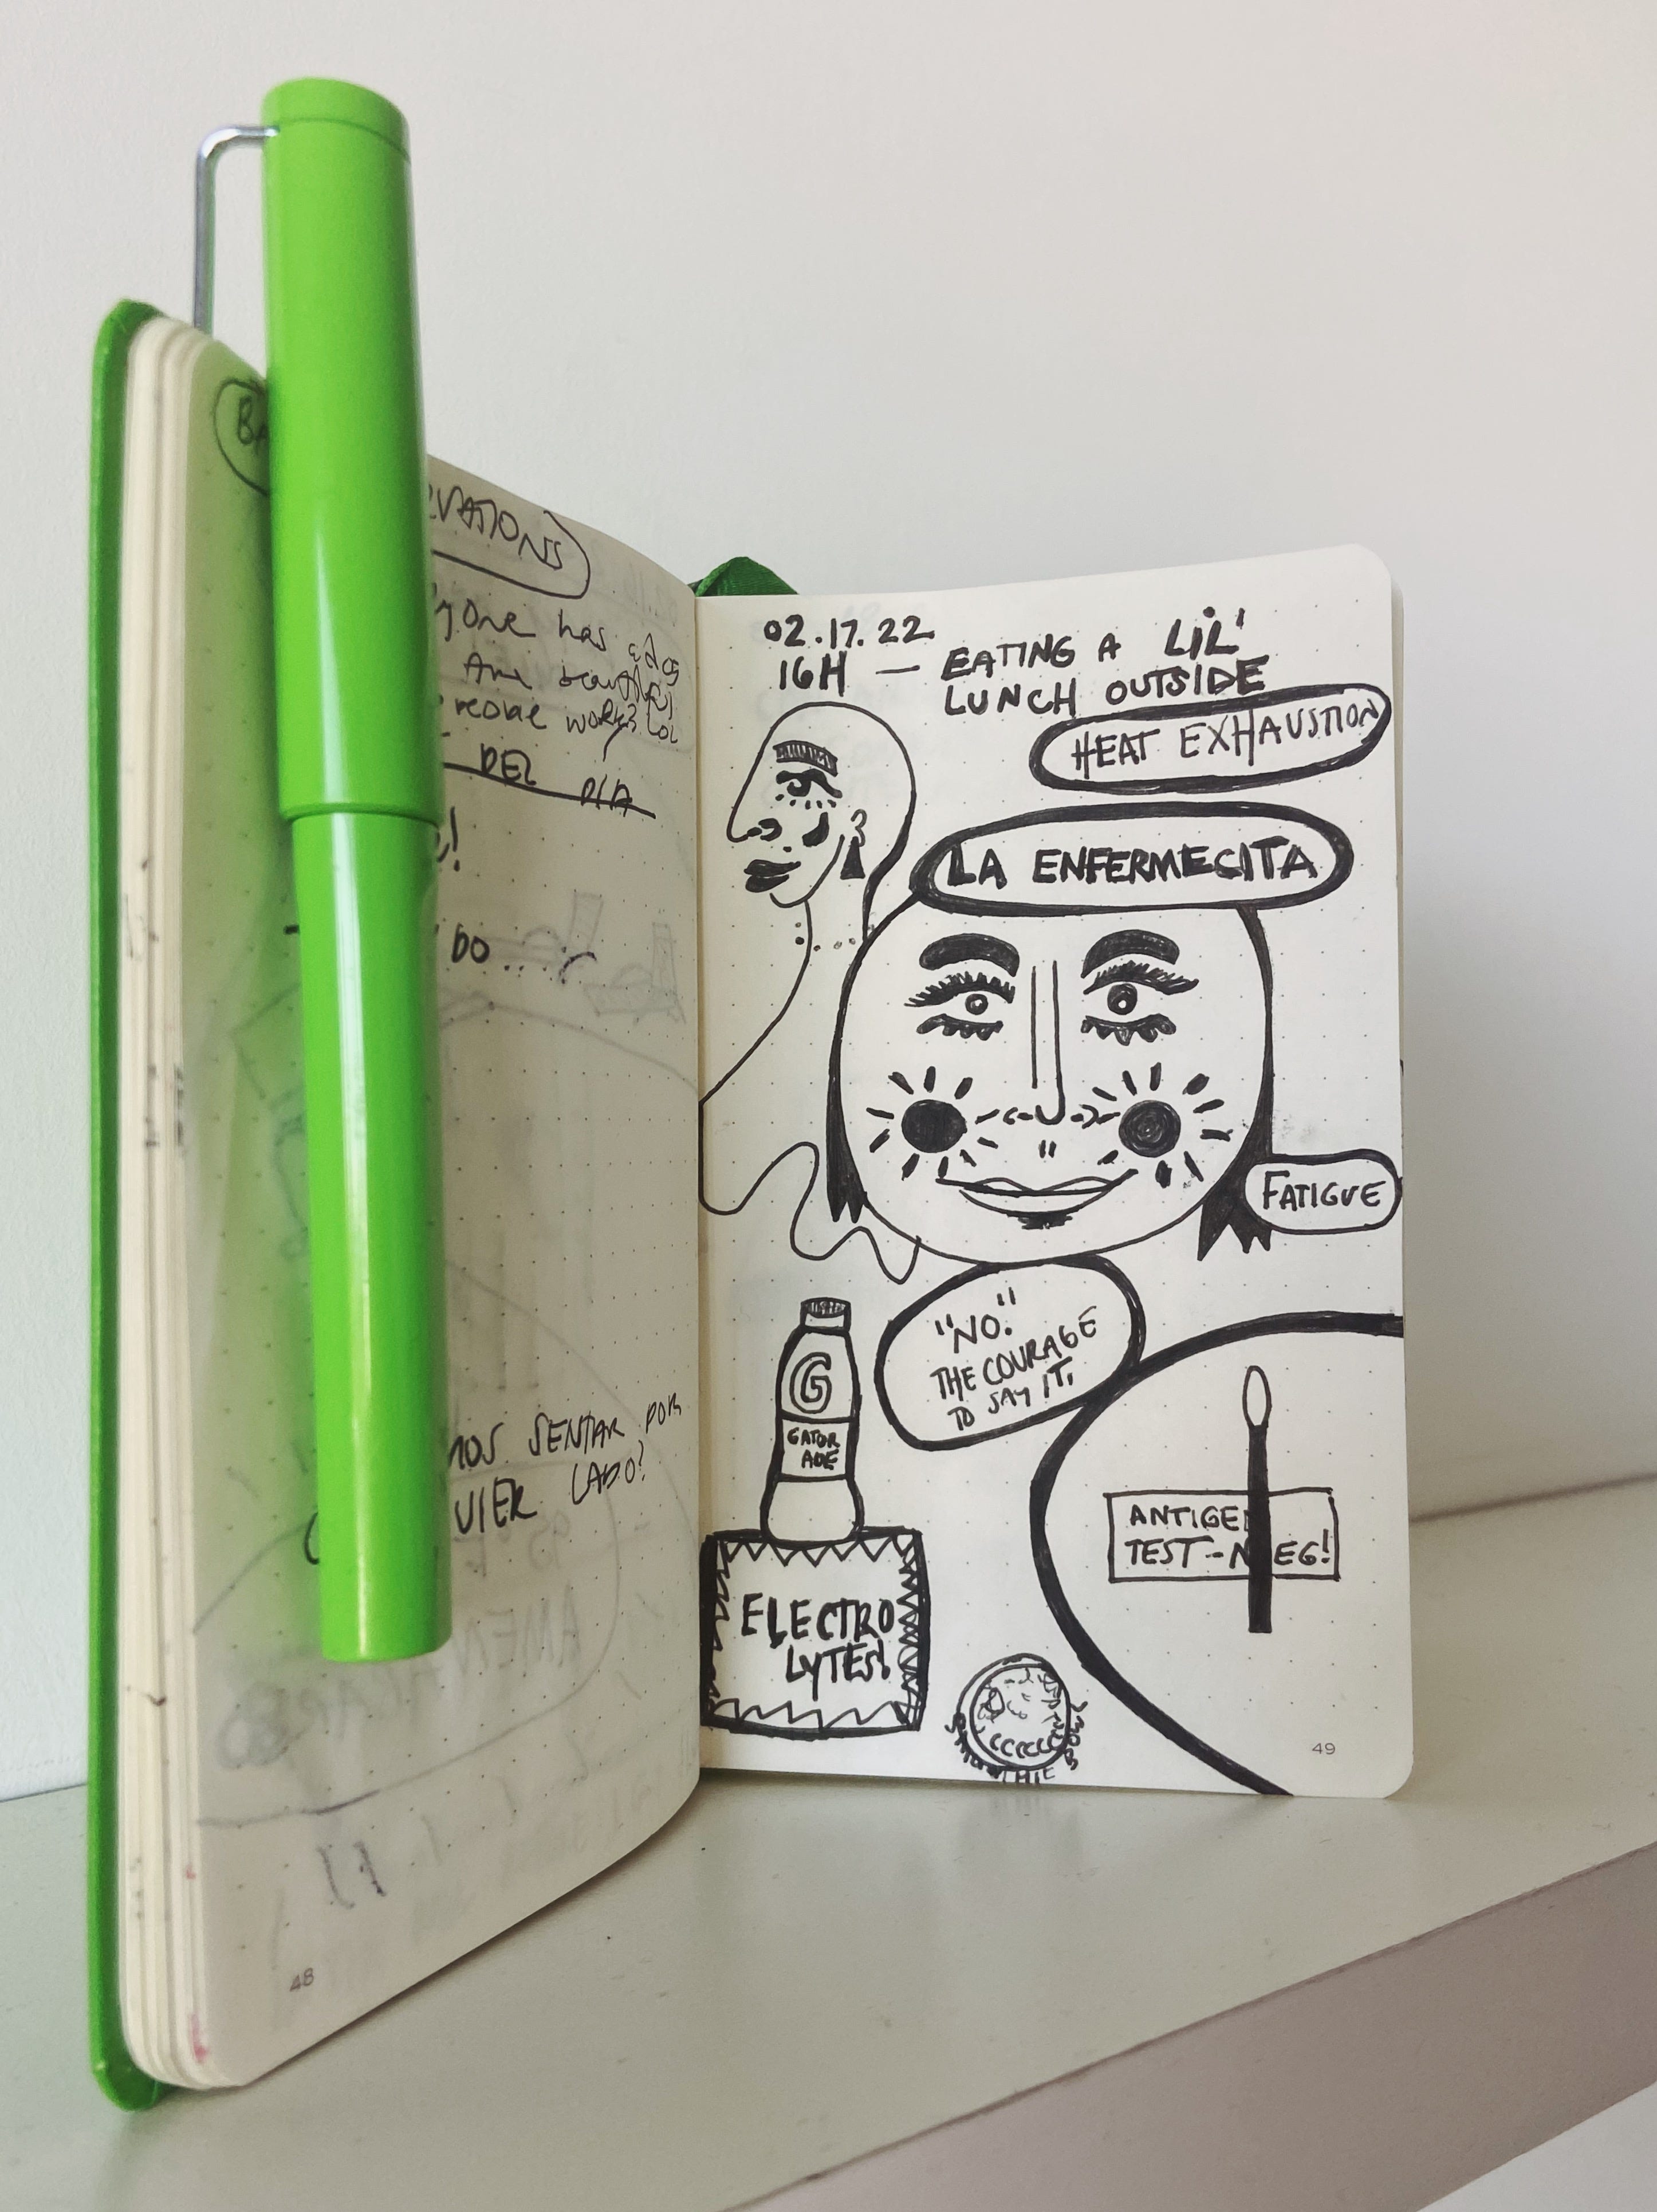 BA
VATIONS
yOne has
Are beautiful
people works lol
DEL DIA
DO...
MOS SENTAR POR
UIER LADO?
48
02.17.22
16H — EATING A LIL'
LUNCH OUTSIDE
HEAT EXHAUSTION
LA ENFERMECITA
FATIGUE
"NO."
THE COURAGE
TO SAY IT.
G
GATOR
ADE
ELECTRO
LYTES!
ANTIGEN
TEST--NEG!
SMOOTHIE BOWL
49